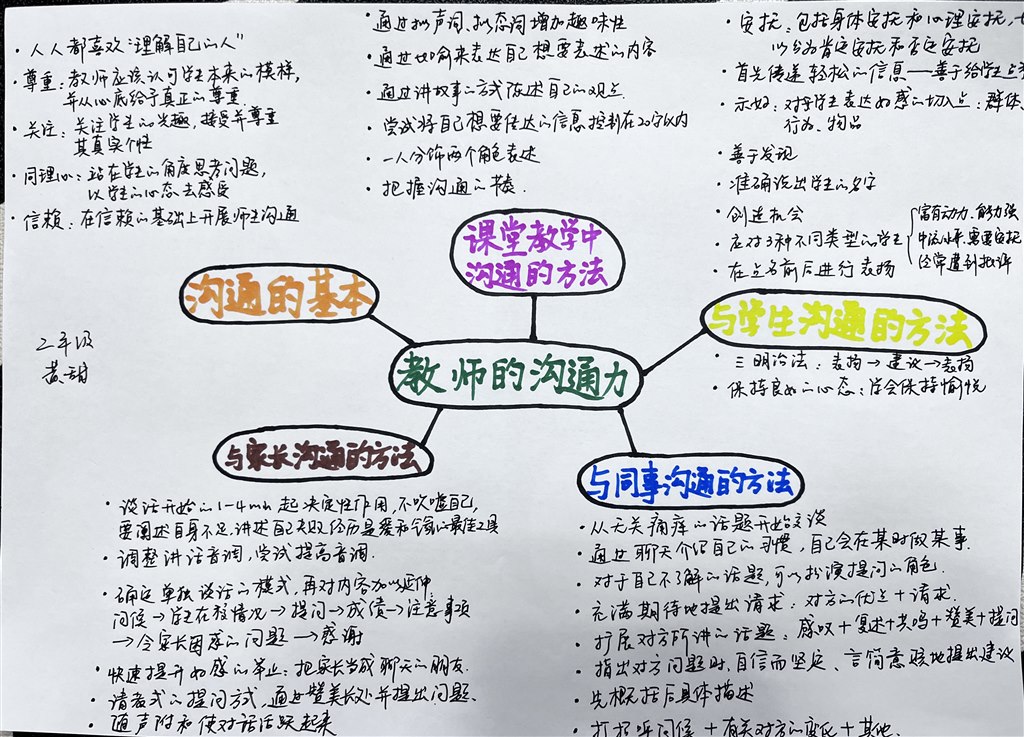 教师的沟通力
沟通的基本
· 人人都喜欢“理解自己的人”
· 尊重：教师应该认可学生本来的模样，
并从心底给予真正的尊重
· 关注：关注学生的兴趣，接受并尊重
其真实个性
· 同理心：站在学生的角度思考问题，
以学生的心态去感受
· 信赖：在信赖的基础上开展师生沟通
二年级
黄甜
课堂教学中
沟通的方法
· 通过拟声词、拟态词增加趣味性
· 通过比喻来表达自己想要表述的内容
· 通过讲故事的方式陈述自己的观点
· 尝试将自己想要传达的信息控制在20字以内
· 一人分饰两个角色表述
· 把握沟通的节奏
与学生沟通的方法
· 安抚：包括身体安抚和心理安抚，也
以分为肯定安抚和否定安抚
· 首先传递轻松的信息——善于给学生点
· 示好：对于学生表达好感的切入点：群体、
行为、物品
· 善于发现
· 准确说出学生的名字
· 创造机会
· 应对3种不同类型的学生
富有动力、能力强
中流水平、需要安抚
经常遭到批评
· 在点名前后进行表扬
· 三明治法：表扬→建议→表扬
· 保持良好的心态：学会保持愉悦
与家长沟通的方法
· 谈话开始的1-4min起决定性作用，不吹嘘自己，
要阐述自身不足，讲述自己失败经历是缓和气氛的最佳工具
· 调整讲话音调，尝试提高音调.
· 确定单独谈话的模式，再对内容加以延伸
问候→学生在校情况→提问→成绩→注意事项
→令家长困惑的问题→感谢
· 快速提升好感的举止：把家长当成聊天的朋友.
· 请教式的提问方式，通过赞美长处并提出问题.
· 随声附和使对话活跃起来
与同事沟通的方法
· 从无关痛痒的话题开始交谈
· 通过聊天介绍自己的习惯，自己会在某时做某事.
· 对于自己不了解的话题，可以扮演提问的角色.
· 充满期待地提出请求：对方的优点+请求.
· 扩展对方所讲的话题：感叹+复述+共鸣+赞美+提问
· 指出对方问题时，自信而坚定、言简意赅地提出建议
· 先概括后具体描述
· 打招呼问候+有关对方的变化+其他.